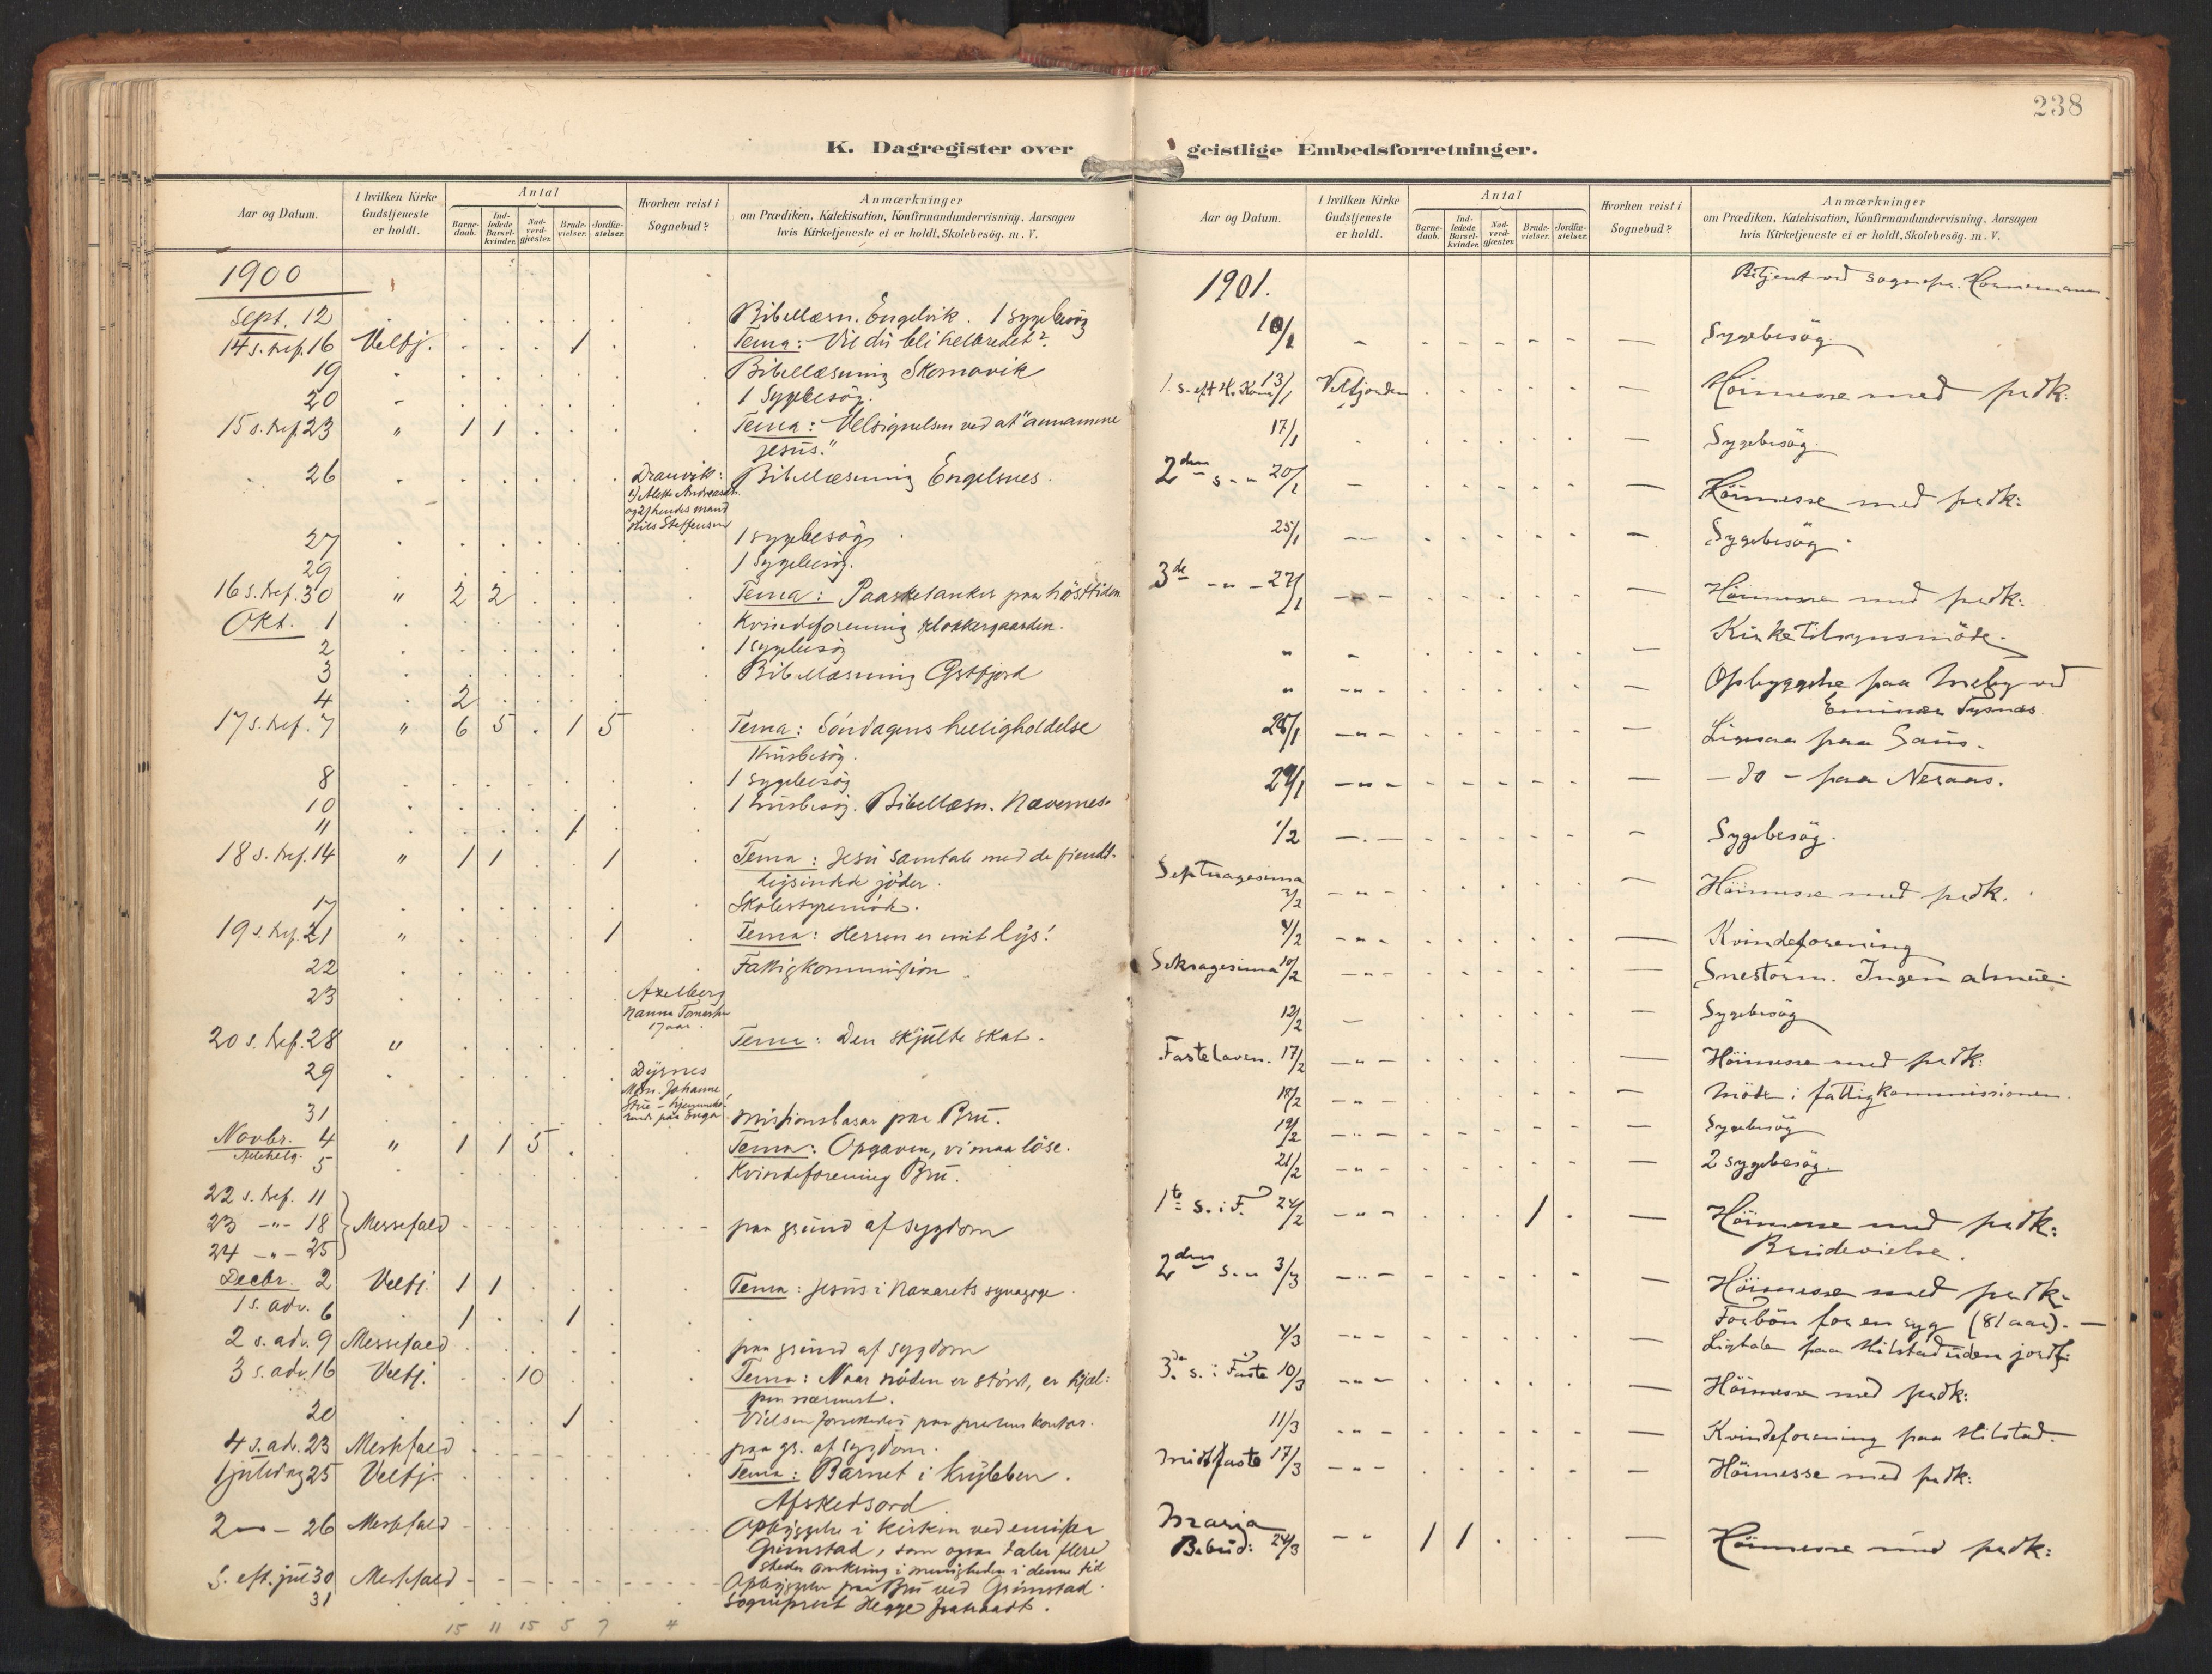 238
K. Dagregister over geistlige Embedsforretninger.
Aar og Datum.
I hvilken Kirke Gudstjeneste er holdt.
Antal
Barnedaab.
Indledede Barselkvinder.
Nadverdgjester.
Brudevielser.
Jordfæstelser.
Hvorhen reist i Sognebud?
Anmærkninger
om Prædiken, Katekisation, Konfirmandundervisning, Aarsagen
hvis Kirketjeneste ei er holdt, Skolebesög. m. V.
1900
Sept. 12 Bibellæsn. Engelvik. 1 sygebesög
14 s. tref. 16 Velfj. 1 Tema: Vil du bli helbredet?
19 Bibellæsning Skomovik
20 1 Sygebesög.
15 s. tref. 23 " 1 1 Tema: Velsignelsen ved at "annamme
Jesus."
26 Dranvik: Bibellæsning Engelsnes.
og 2) hendes mand
Nils Steffensen
27 1 sygebesög
29 1 Sygebesög.
16 s. tref. 30 " 2 2 Tema: Paasketanker paa hösttiden
Okt. 1 Kvindeforening klokkergaarden.
2 1 sygebesög
3 Bibellæsning
4 2
17 s. tref. 7 " 6 5 . 1 5 Tema: Söndagens helligholdelse
Husbesög.
8 1 sygebesög
10 1 husbesög. Bibellæsn. Nævernes.
11 1
18 s. tref. 14 " 1 1 . . 1 Tema: Jesu samtale med de fiendt-
ligsindede jöder.
17 Skolestyremöde.
19 s. tref. 21 " 1 Tema: Herren er mit lys!
22 Fattigkommission
23 Axelberg
17 aar.
20 s. tref. 28 " Tema: Den skjulte skat.
29 Dyrnes
Johanne
31 Missionsbasar paa Bru.
Novbr. 4 " 1 1 5 Tema: Opgaven, vi maa löse.
5 Kvindeforening Bru.
22 s. tref. 11
23 -"- 18 Messefald paa grund af sygdom
24 -"- 25
Decbr. 2 Velfj. 1 1 Tema: Jesus i Nazarets synagoge
1 s. adv. 6 1 1
2 s. adv. 9 Messefald paa grund af sygdom
3 s. adv. 16 Velfj. 10 Tema: Naar nöden er störst, er hjæl-
pen nærmest.
20 1 Vielsen forrettedes paa prestens kontor.
4 s. adv. 23 Messefald paa gr. af sygdom.
1 juledag 25 Velfj. Tema: Barnet i krybben.
Afskedsord
2 - 26 Messefald Opbyggelse i kirken ved emissær
Grimstad, som ogsaa taler flere
steder omkring i menigheden i denne tid
S. eft. jul 30 Messefald Opbyggelse paa Bru ved Grimstad.
31 Sogneprest Hegge fratraadt.
15 11 15 5 7 4
Aar og Datum.
I hvilken Kirke Gudstjeneste er holdt.
Antal
Barnedaab.
Indledede Barselkvinder.
Nadverdgjester.
Brudevielser.
Jordfæstelser.
Hvorhen reist i Sognebud?
Anmærkninger
om Prædiken, Katekisation, Konfirmandundervisning, Aarsagen
hvis Kirketjeneste ei er holdt, Skolebesög. m. V.
1901. Betjent ved sognepr. Hornemann.
10/1 Sygebesög
1. s. eft H. 13/1 Velfjorden Höimesse med prædk:
17/1 Sygebesög
2den s. -"- 20/1 Höimesse med prædk:
25/1 Sygebesög
3de -"- 27/1 Höimesse med prædk:
Kirketilsynsmöte.
" Opbyggelse paa Ineby ved
Tysnes
28/1 -"- paa Saus.
29/1 -"- - do - paa Neraas.
1/2 Sygebesög.
Septuagesima
3/2 -"- Höimesse med prædk.
4/2 -"- Kvindeforening
Seksagesima 10/2 -"- Snestorm. Ingen almue
12/2 Sygebesög
Fastelaven. 17/2 -"- Höimesse med prædk:
18/2 -"- Möte i fattigkommissionen.
19/2 -"- Sygebesög
21/2 -"- 2 sygebesög.
1te s. i F. 24/2 -"- 1 Höimesse med prædk:
Brudevielse.
2den s. " 3/3 -"- Höimesse med prædk:
Forbön for en syg (81 aar).
4/3 -"- Ligtale paa Hilstad uden jordf:
3de s. i Faste 10/3 -"- Höimesse med prædk:
11/3 -"- Kvindeforening paa Hilstad.
Midtfaste 17/3 -"- Höimesse med prædk:
Maria
Bebud: 24/3 -"- 1 1 Höimesse med prædk: